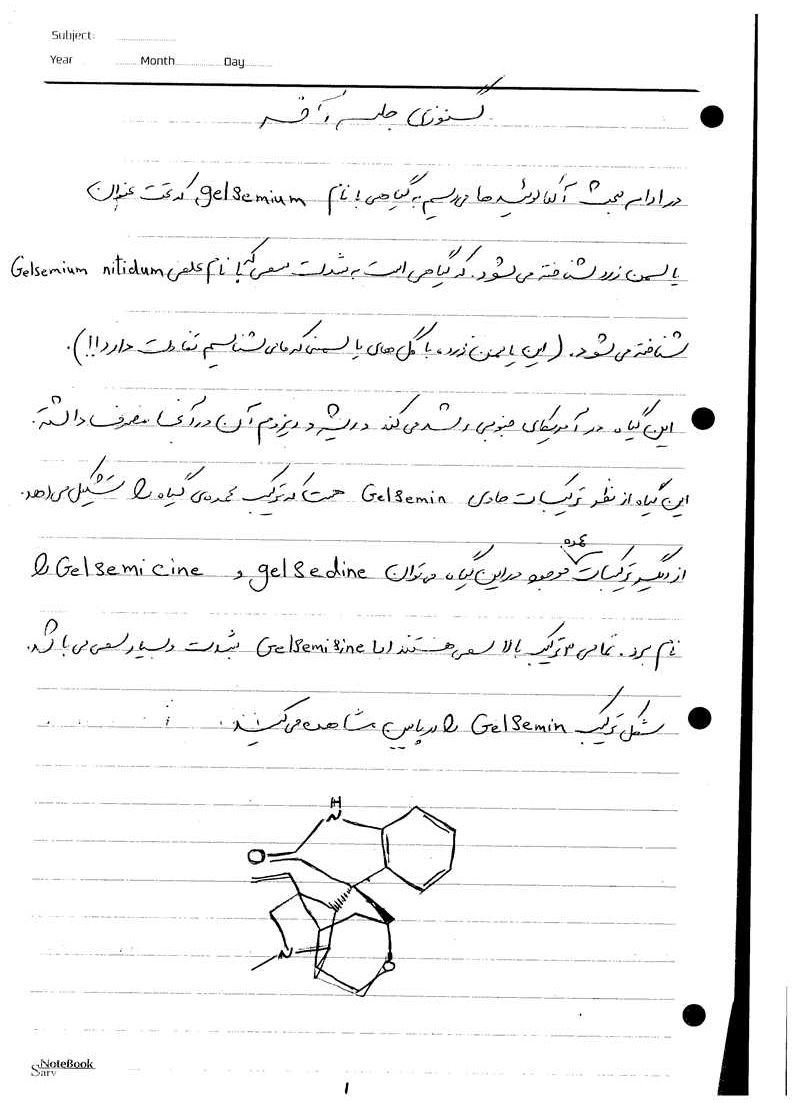 Subject:
Year Month Day
گنوزی جلسه آخر
در ادامه مبحث آلکالوئیدها می‌رسیم به گیاهی با نام gelsemium که تحت عنوان
یاسمن زرد شناخته می‌شود. که گیاهی است به شدت سمی که با نام علمی Gelsemium nitidum
شناخته می‌شود. (این یاسمن زرد، با گل‌های یاسمنی که ما می‌شناسیم تفاوت دارد!!).
این گیاه در آمریکای جنوبی رشد می‌کند و ریشه و ریزوم آن در آنجا مصرف داشته.
این گیاه از نظر ترکیبات حاوی Gelsemin هست که ترکیب عمده‌ی گیاه را تشکیل می‌دهد.
از دیگر ترکیبات عمده موجود در این گیاه می‌توان gelsedine و Gelsemicine را
نام برد. تمامی ۳ ترکیب بالا سمی هستند اما Gelsemisine بشدت و بسیار سمی می‌باشد.
شکل ترکیب Gelsemin را در پایین مشاهده می‌کنید:
H
N
O
N
O
NoteBook
Sarv
1